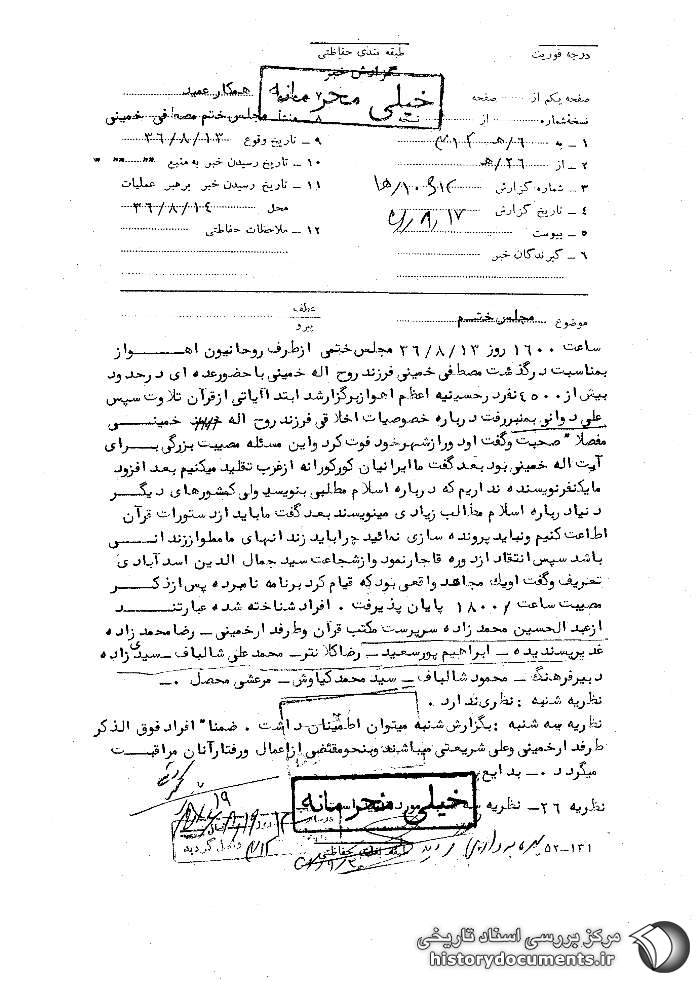 درجه فوریت
طبقه بندی حفاظتی
گزارش خبر
خیلی محرمانه
صفحه یکم از صفحه
نسخه شماره از نسخه
۱ - به ۶/هـ
۲ - از ۲۶/هـ
۳ - شماره گزارش
۴ - تاریخ گزارش
۵ - پیوست
۶ - گیرندگان خبر
همکار عمید
۸ - منشا مجلس ختم مصطفی خمینی
۹ - تاریخ وقوع ۳۶/۸/۱۳
۱۰ - تاریخ رسیدن خبر به منبع
۱۱ - تاریخ رسیدن خبر برهبر عملیات
محل ۳۶/۸/۱۴
۱۲ - ملاحظات حفاظتی
موضوع مجلس ختم
عطف
پیرو
ساعت ۱۶۰۰ روز ۳۶/۸/۱۳ مجلس ختمی ازطرف روحانیون اهواز
بمناسبت درگذشت مصطفی خمینی فرزند روح اله خمینی با حضور عده ای درحدود
بیش از ۴۵۰۰ نفر درحسینیه اعظم اهواز برگزار شد ابتدا آیاتی ازقرآن تلاوت سپس
علی دوانی بمنبر رفت درباره خصوصیات اخلاقی فرزند روح اله خمینی
مفصلا" صحبت وگفت او دور ازشهر خود فوت کرد واین مسئله مصیبت بزرگی برای
آیت اله خمینی بود بعد گفت ما ایرانیان کورکورانه ازغرب تقلید میکنیم بعد افزود
ما یکنفر نویسنده نداریم که درباره اسلام مطلبی بنویسد ولی کشورهای دیگر
دنیا درباره اسلام مطالب زیادی مینویسند بعد گفت ما باید از دستورات قرآن
اطاعت کنیم ونباید پرونده سازی نمائید چرا باید زندانهای ما مملو اززندانی
باشد سپس انتقاد ازدوره قاجار نمود وازشجاعت سید جمال الدین اسدآبادی
تعریف وگفت اویک مجاهد واقعی بود که قیام کرد برنامه نامبرده پس ازذکر
مصیبت ساعت ۱۸۰۰ پایان پذیرفت . افراد شناخته شده عبارتند
ازعبدالحسین محمدزاده سرپرست مکتب قرآن وطرفدارخمینی - رضا محمدزاده
غدیر پسندیده - ابراهیم پورسعید - رضا کلانتر - محمد علی شالباف - سیدی زاده
دبیرفرهنگ - محمود شالباف - سید محمد کیاوش - مرعشی محصل .-
نظریه شنبه : نظری ندارد .
نظریه سه شنبه : بگزارش شنبه میتوان اطمینان داشت . ضمنا" افراد فوق الذکر
طرفدارخمینی وعلی شریعتی میباشند وبنحو مقتضی ازاعمال ورفتارآنان مراقبت
میگردد .- بدایع
نظریه ۲۶- نظریه سه مورد
خیلی محرمانه
۵۲-۱۳۱
طبقه بندی حفاظتی
مرکز بررسی اسناد تاریخی
historydocuments.ir